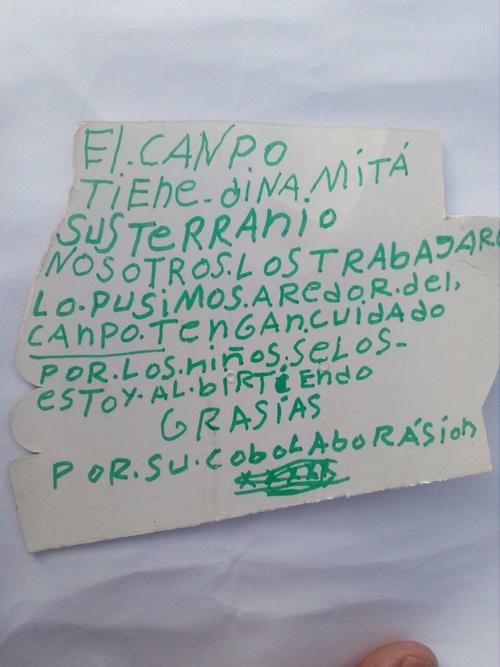 El.CANPO
TiEne-diNA.MiTÁ
SUSTeRRANio
NOSOTROS.LOSTRABAJARO
LO.PUSiMOS.AREdOR.del,
CAnPO.TEnGAn.CUidAdO
POR.LOS.niños.SeLOS-
eSTOY.AL.biRTiEndo
GRASÍAS
POR.SU.CoboLAboRÁSion